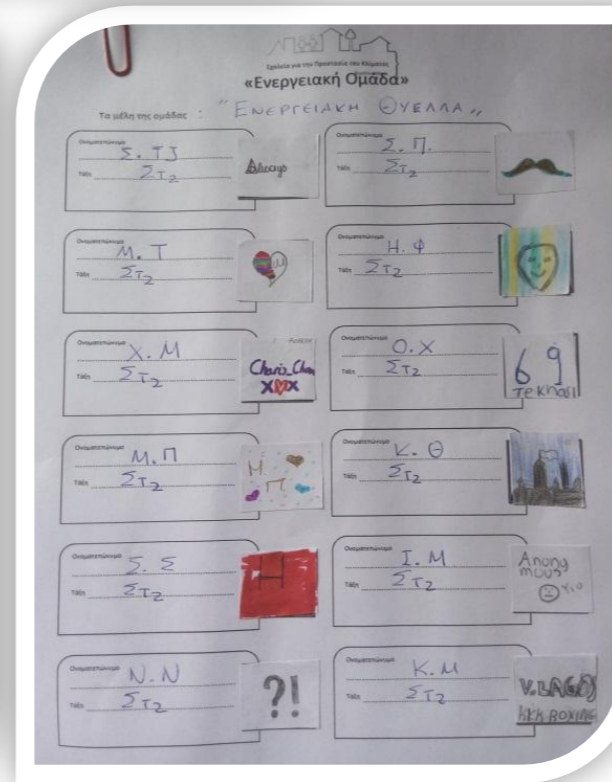 Σχολεία για την Προστασία του Κλίματος
«Ενεργειακή Ομάδα»
Τα μέλη της ομάδας : "ΕΝΕΡΓΕΙΑΚΗ ΘΥΕΛΛΑ"
Ονοματεπώνυμο
Σ. ΤΖ
Τάξη ΣΤ2
Always
Ονοματεπώνυμο
Σ. Π.
Τάξη ΣΤ2
Ονοματεπώνυμο
Μ. Τ
Τάξη ΣΤ2
Ονοματεπώνυμο
Η. Φ
Τάξη ΣΤ2
Ονοματεπώνυμο
Χ. Μ
Τάξη ΣΤ2
XOX
Ονοματεπώνυμο
Ο. Χ
Τάξη ΣΤ2
69
Ονοματεπώνυμο
Μ. Π
Τάξη ΣΤ2
Μ
Π
Ονοματεπώνυμο
Κ. Θ
Τάξη ΣΤ2
Ονοματεπώνυμο
Σ. Σ
Τάξη ΣΤ2
H
Ονοματεπώνυμο
Ι. Μ
Τάξη ΣΤ2
Anony
mous
Ονοματεπώνυμο
Ν. Ν
Τάξη ΣΤ2
?!
Ονοματεπώνυμο
Κ. Μ
Τάξη ΣΤ2